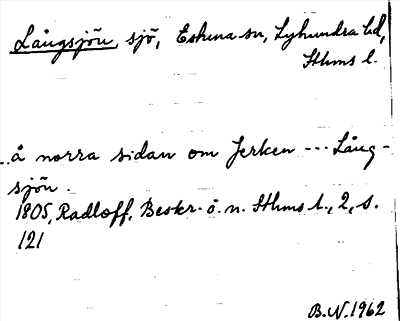 Långsjön, sjö, Eskna sn, Lyhundra hd,
Sthms l.
..å norra sidan om Jerken --- Lång-
sjön.
1805, Radloff, Beskr. ö. n. Sthms l., 2, s.
121
B.W. 1962